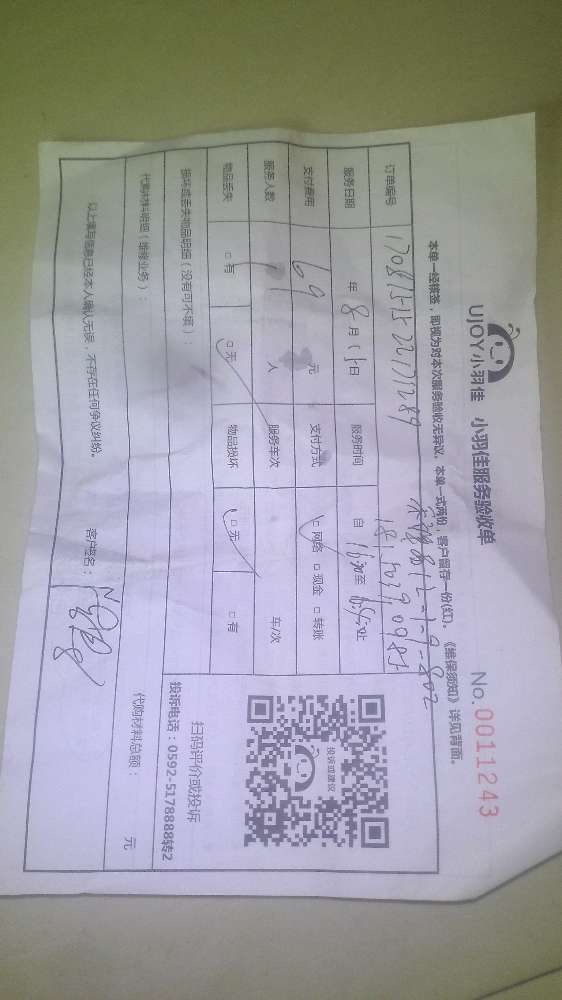 UJOY小羽佳 小羽佳服务验收单
No.0011243
本单一经核签,即视为对本次服务验收无异议。本单一式两份,客户留存一份(红)。《维保须知》详见背面。
订单编号
服务日期 年 8 月 15 日 服务时间 自 1630 至
支付费用 69 元 支付方式 □网络 □现金 □转账
服务人数 1 人 服务车次 车/次
物品丢失 □有 □无 物品损坏 □无 □有
损坏或丢失物品明细(没有可不填):
投诉或建议
扫码评价或投诉
投诉电话:0592-5178888转2
代购材料明细(维修业务): 代购材料总额: 元
以上填写信息已经本人确认无误,不存在任何争议纠纷。 客户签名: